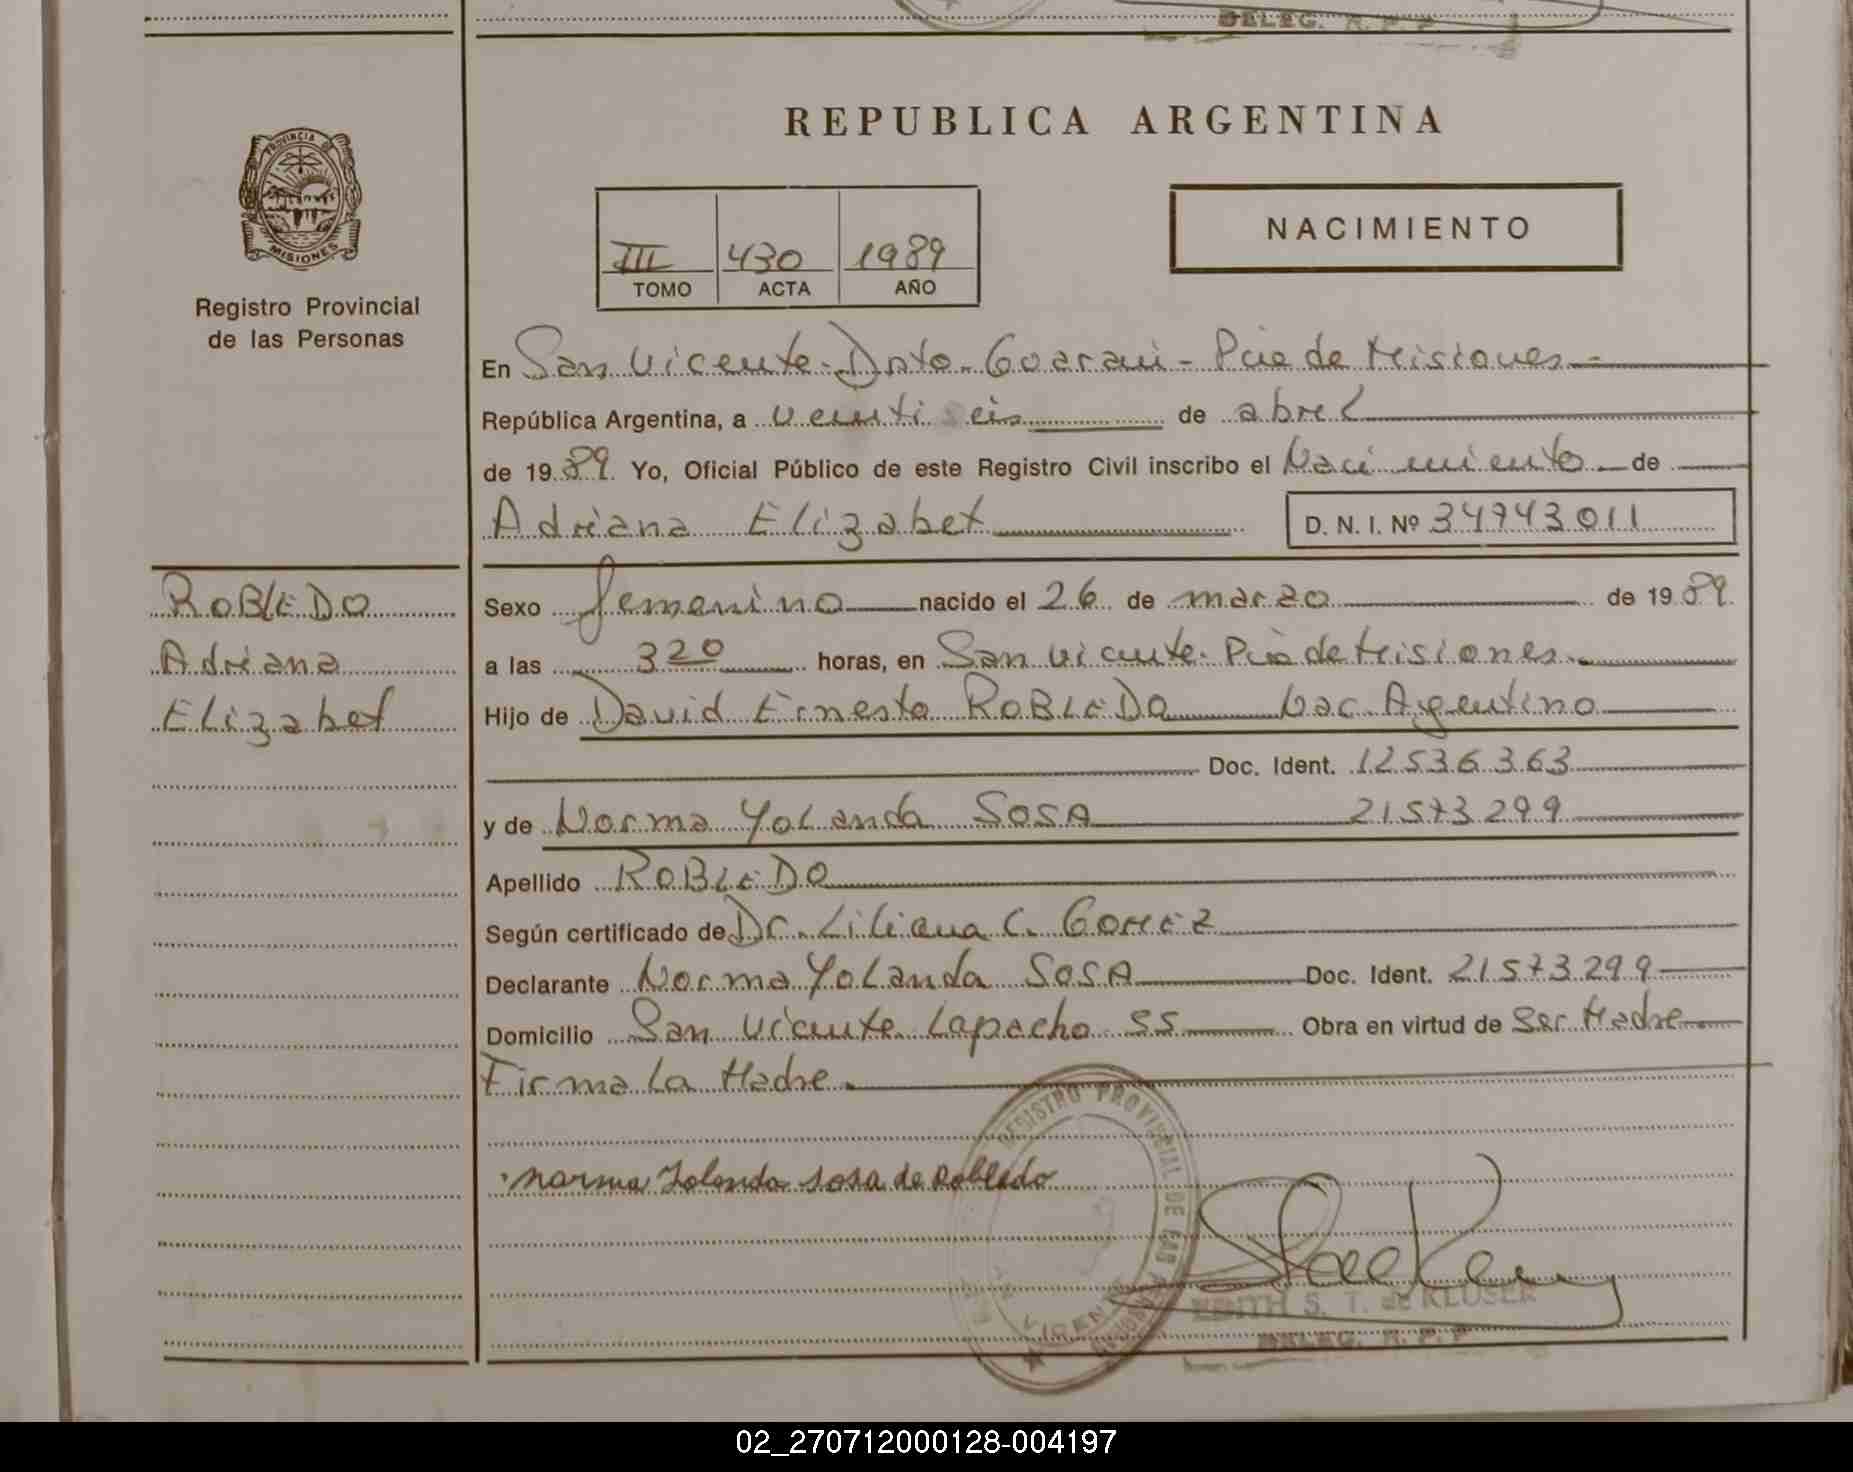 DELEG. R. P. P.
REPUBLICA ARGENTINA
PROVINCIA
MISIONES
Registro Provincial
de las Personas
III 430 1989
TOMO ACTA AÑO
NACIMIENTO
En San Vicente - Dpto. Guarani - Pcia de Misiones
República Argentina, a veinti seis de abril
de 1989. Yo, Oficial Público de este Registro Civil inscribo el Nacimiento de
Adriana Elizabet D. N. I. Nº 34943011
ROBLEDO
Adriana
Elizabet
Sexo femenino nacido el 26 de marzo de 1989.
a las 320 horas, en San Vicente. Pcia de Misiones.
Hijo de David Ernesto ROBLEDO Nac. Argentino
Doc. Ident. 12536363
y de Norma Yolanda SOSA 21573299
Apellido ROBLEDO
Según certificado de Dr. Liliana C. GOMEZ
Declarante Norma Yolanda SOSA Doc. Ident. 21573299
Domicilio San Vicente Lapacho SS Obra en virtud de Ser Madre
Firma La Madre.
Norma Yolanda Sosa de Robledo
REGISTRO PROVINCIAL DE LAS PERSONAS
VICENTE
EDITH S. T. de KLUSER
DELEG. R. P. P.
02_270712000128-004197